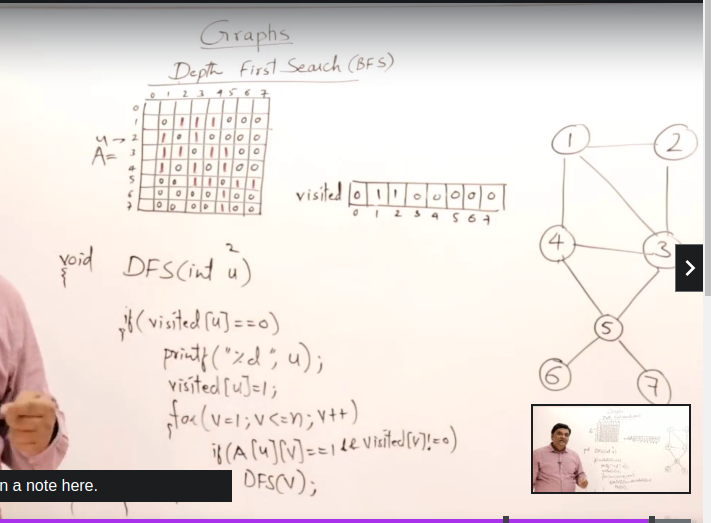 Graphs
Depth First Search (BFS)
0 1 2 3 4 5 6 7
0
1 0 1 1 1 0 0 0
u → 2 1 0 1 0 0 0 0
A= 3 1 1 0 1 1 0 0
4 1 0 1 0 1 0 0
5 0 0 1 1 0 1 1
6 0 0 0 0 1 0 0
7 0 0 0 0 1 0 0
visited 0 1 1 0 0 0 0 0
0 1 2 3 4 5 6 7
1 2
4 3
5
6 7
2
void DFS(int u)
{
if(visited[u]==0)
{
printf("%d", u);
visited[u]=1;
for(v=1;v<=n;v++)
{
if(A[u][v]==1 && visited[v]!=0)
DFS(v);
n a note here.